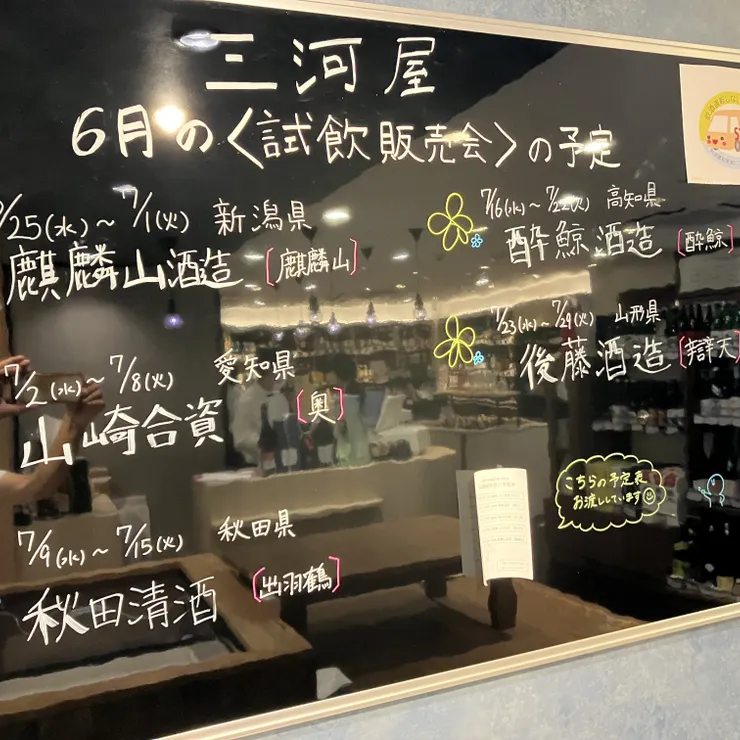 三河屋
6月の〈試飲販売会〉の予定
/25(水)～7/1(火) 新潟県
麒麟山酒造 [麒麟山]
7/2(水)～7/8(火) 愛知県
山崎合資 [奥]
7/9(水)～7/15(火) 秋田県
秋田清酒 [出羽鶴]
7/16(水)～7/22(火) 高知県
酔鯨酒造 [酔鯨]
7/23(水)～7/29(火) 山形県
後藤酒造 [辯天
こちらの予定表
お渡ししています